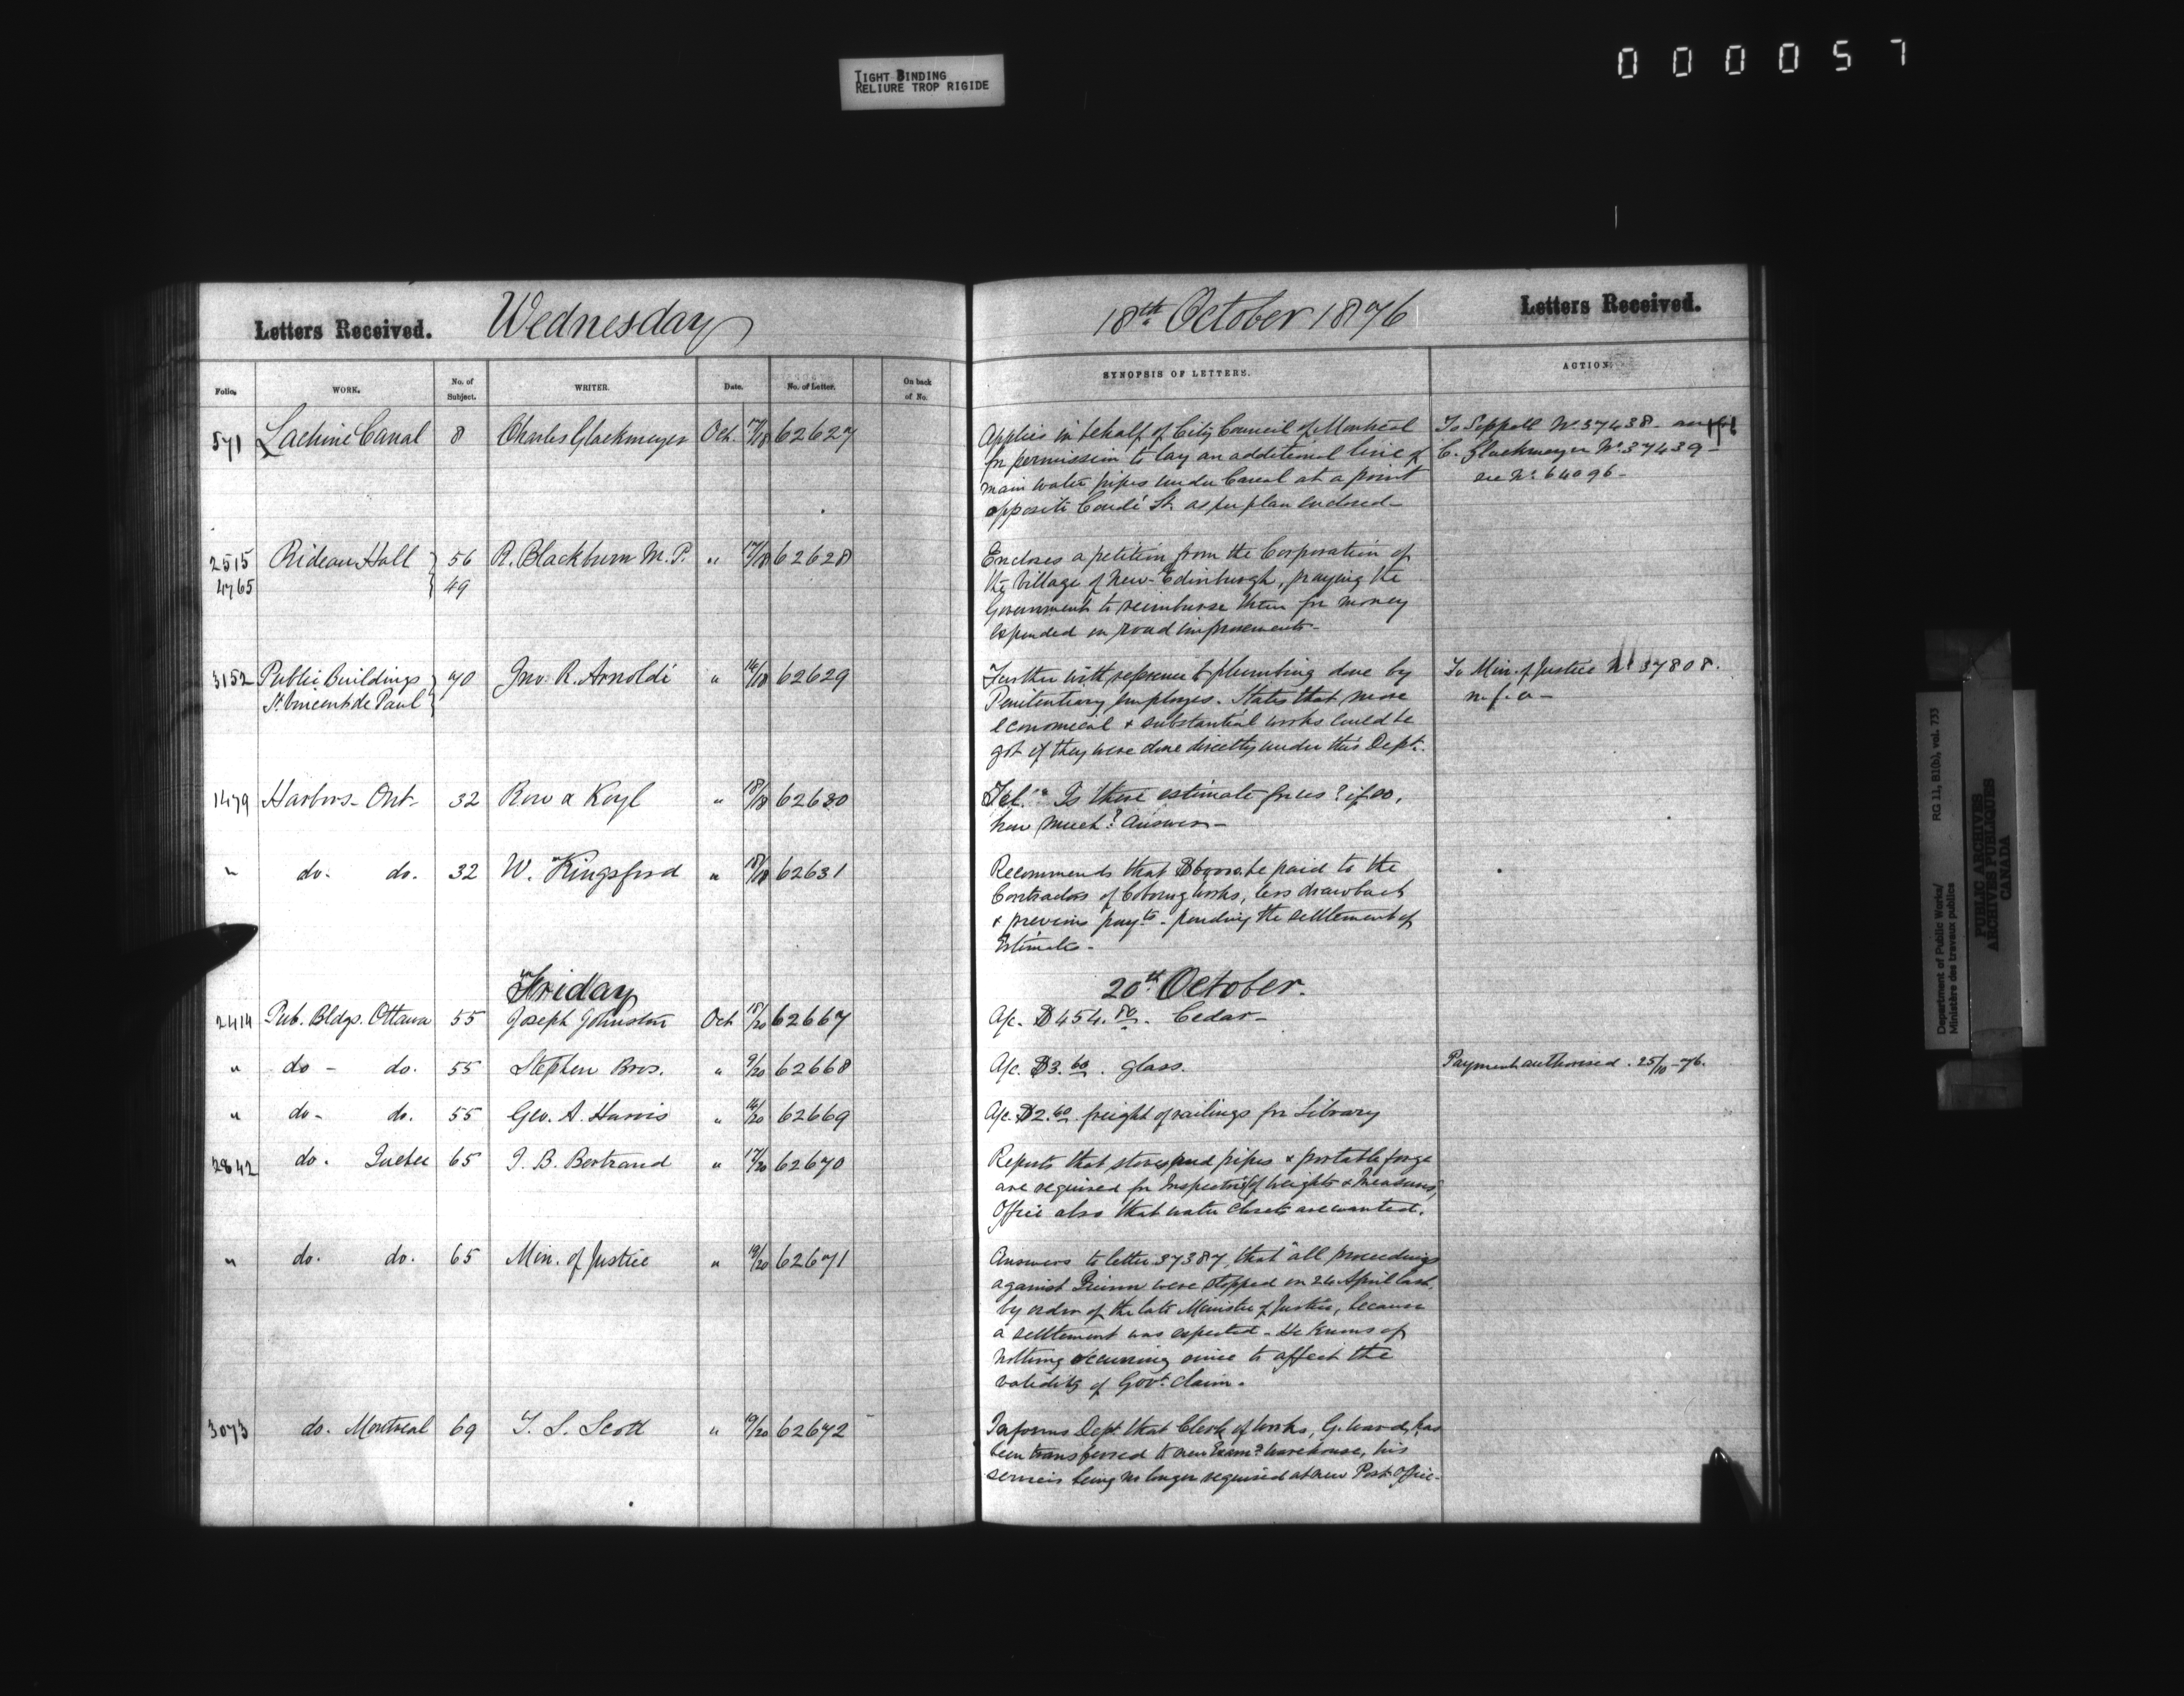 TIGHT BINDING
RELIURE TROP RIGIDE
000057
Letters Received. Wednesday 18th October 1876 Letters Received.
Folio. WORK. No. of Subject. WRITER. Date. No. of Letter. On back of No. SYNOPSIS OF LETTERS. ACTION.
571 Lachine Canal 8 Charles Glackmeyer Oct. 17/18 62627
Applies in behalf of City Council of Montreal
for permission to lay an additional line of
main water pipes under Canal at a point
opposite Condé St. as per plan enclosed -
To Sippell No 37438 -
C. Glackmeyer No 37439 -
see No 64096 -
2515 Rideau Hall 56 R. Blackburn M.P. " 17/18 62628
4765 49
Encloses a petition from the Corporation of
the Village of New-Edinburgh, praying the
Government to reimburse them for money
expended on road improvements -
3152 Public Buildings 70 Jno. R. Arnoldi " 14/18 62629
St. Vincent de Paul
Further with reference to plumbing done by
Penitentiary employes. States that more
economical & substantial works could be
got if they were done directly under this Dept.
To Min. of Justice No 37808.
n.f.a -
1479 Harbors - Ont - 32 Row & Koyl " 18/18 62630
Tel. " Is there estimate for us? if so,
how much? Answer -
" do. do. 32 W. Kingsford " 18/18 62631
Recommends that be paid to the
Contractors of Cobourg works, less drawback
& previous payts. pending the settlement of
Estimates -
Friday 20th October.
2414 Pub. Bldgs. Ottawa 55 Joseph Johnston Oct 18/20 62667
A/c. $454.80. Cedar -
" do - do. 55 Stephen Bros. " 9/20 62668
A/c. $3.60. glass.
Payment authorised. 25/10-76.
" do - do. 55 Geo. A. Harris " 14/20 62669
A/c. $2.60 freight of railings for Library
2842 do. Quebec 65 J. B. Bertrand " 17/20 62670
Reports that stoves and pipes & portable forge
are required for Inspector of Weights & Measures,
Office also that water closets are wanted.
" do. do. 65 Min. of Justice " 19/20 62671
Answers to letter 37387, that "all proceedings
against Quinn were stopped on 24 April last,
by order of the late Minister of Justice, because
a settlement was expected - He knows of
nothing occurring since to affect the
validity of Govt. claim.
3073 do. Montreal 69 T. S. Scott " 19/20 62672
Informs Dept. that Clerk of Works, G. Ward, has
been transferred to new Exam. Warehouse, his
services being no longer required at new Post-Office -
Department of Public Works/ RG 11, B1(b), vol. 733
Ministère des travaux publics
PUBLIC ARCHIVES
ARCHIVES PUBLIQUES
CANADA